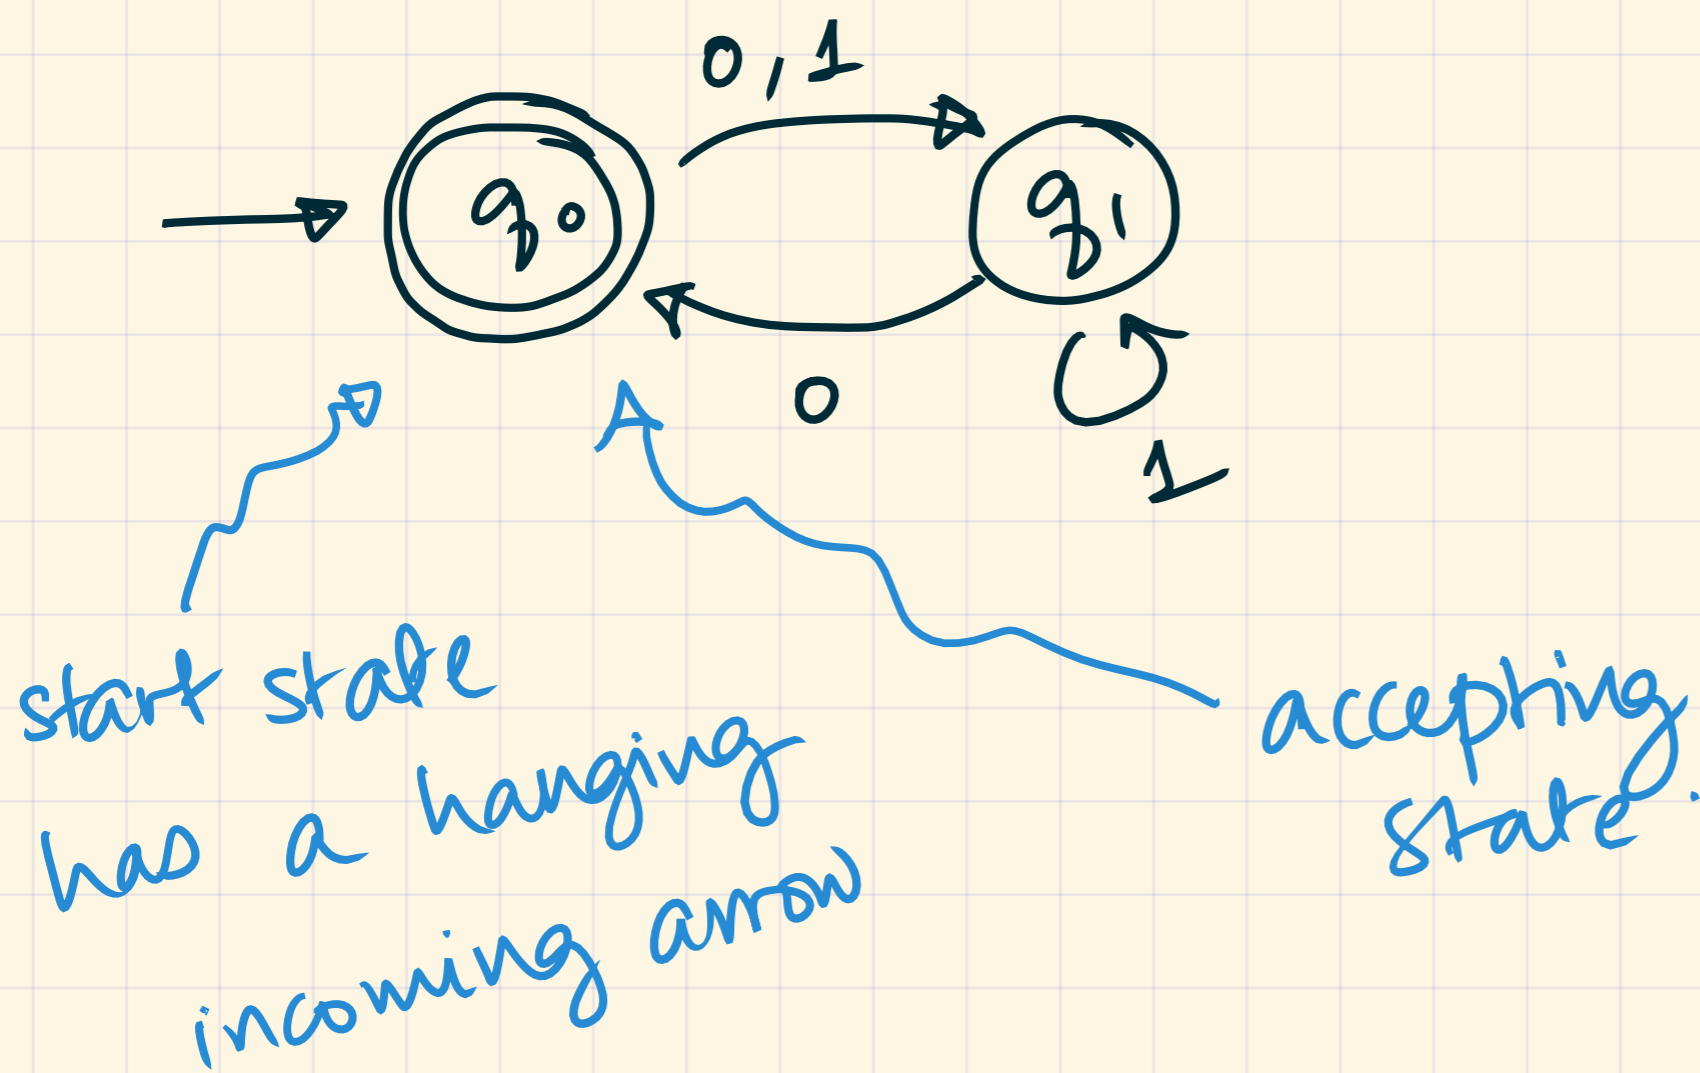 0,1
q0
q1
0
1
start state
has a hanging
incoming arrow
accepting
state.